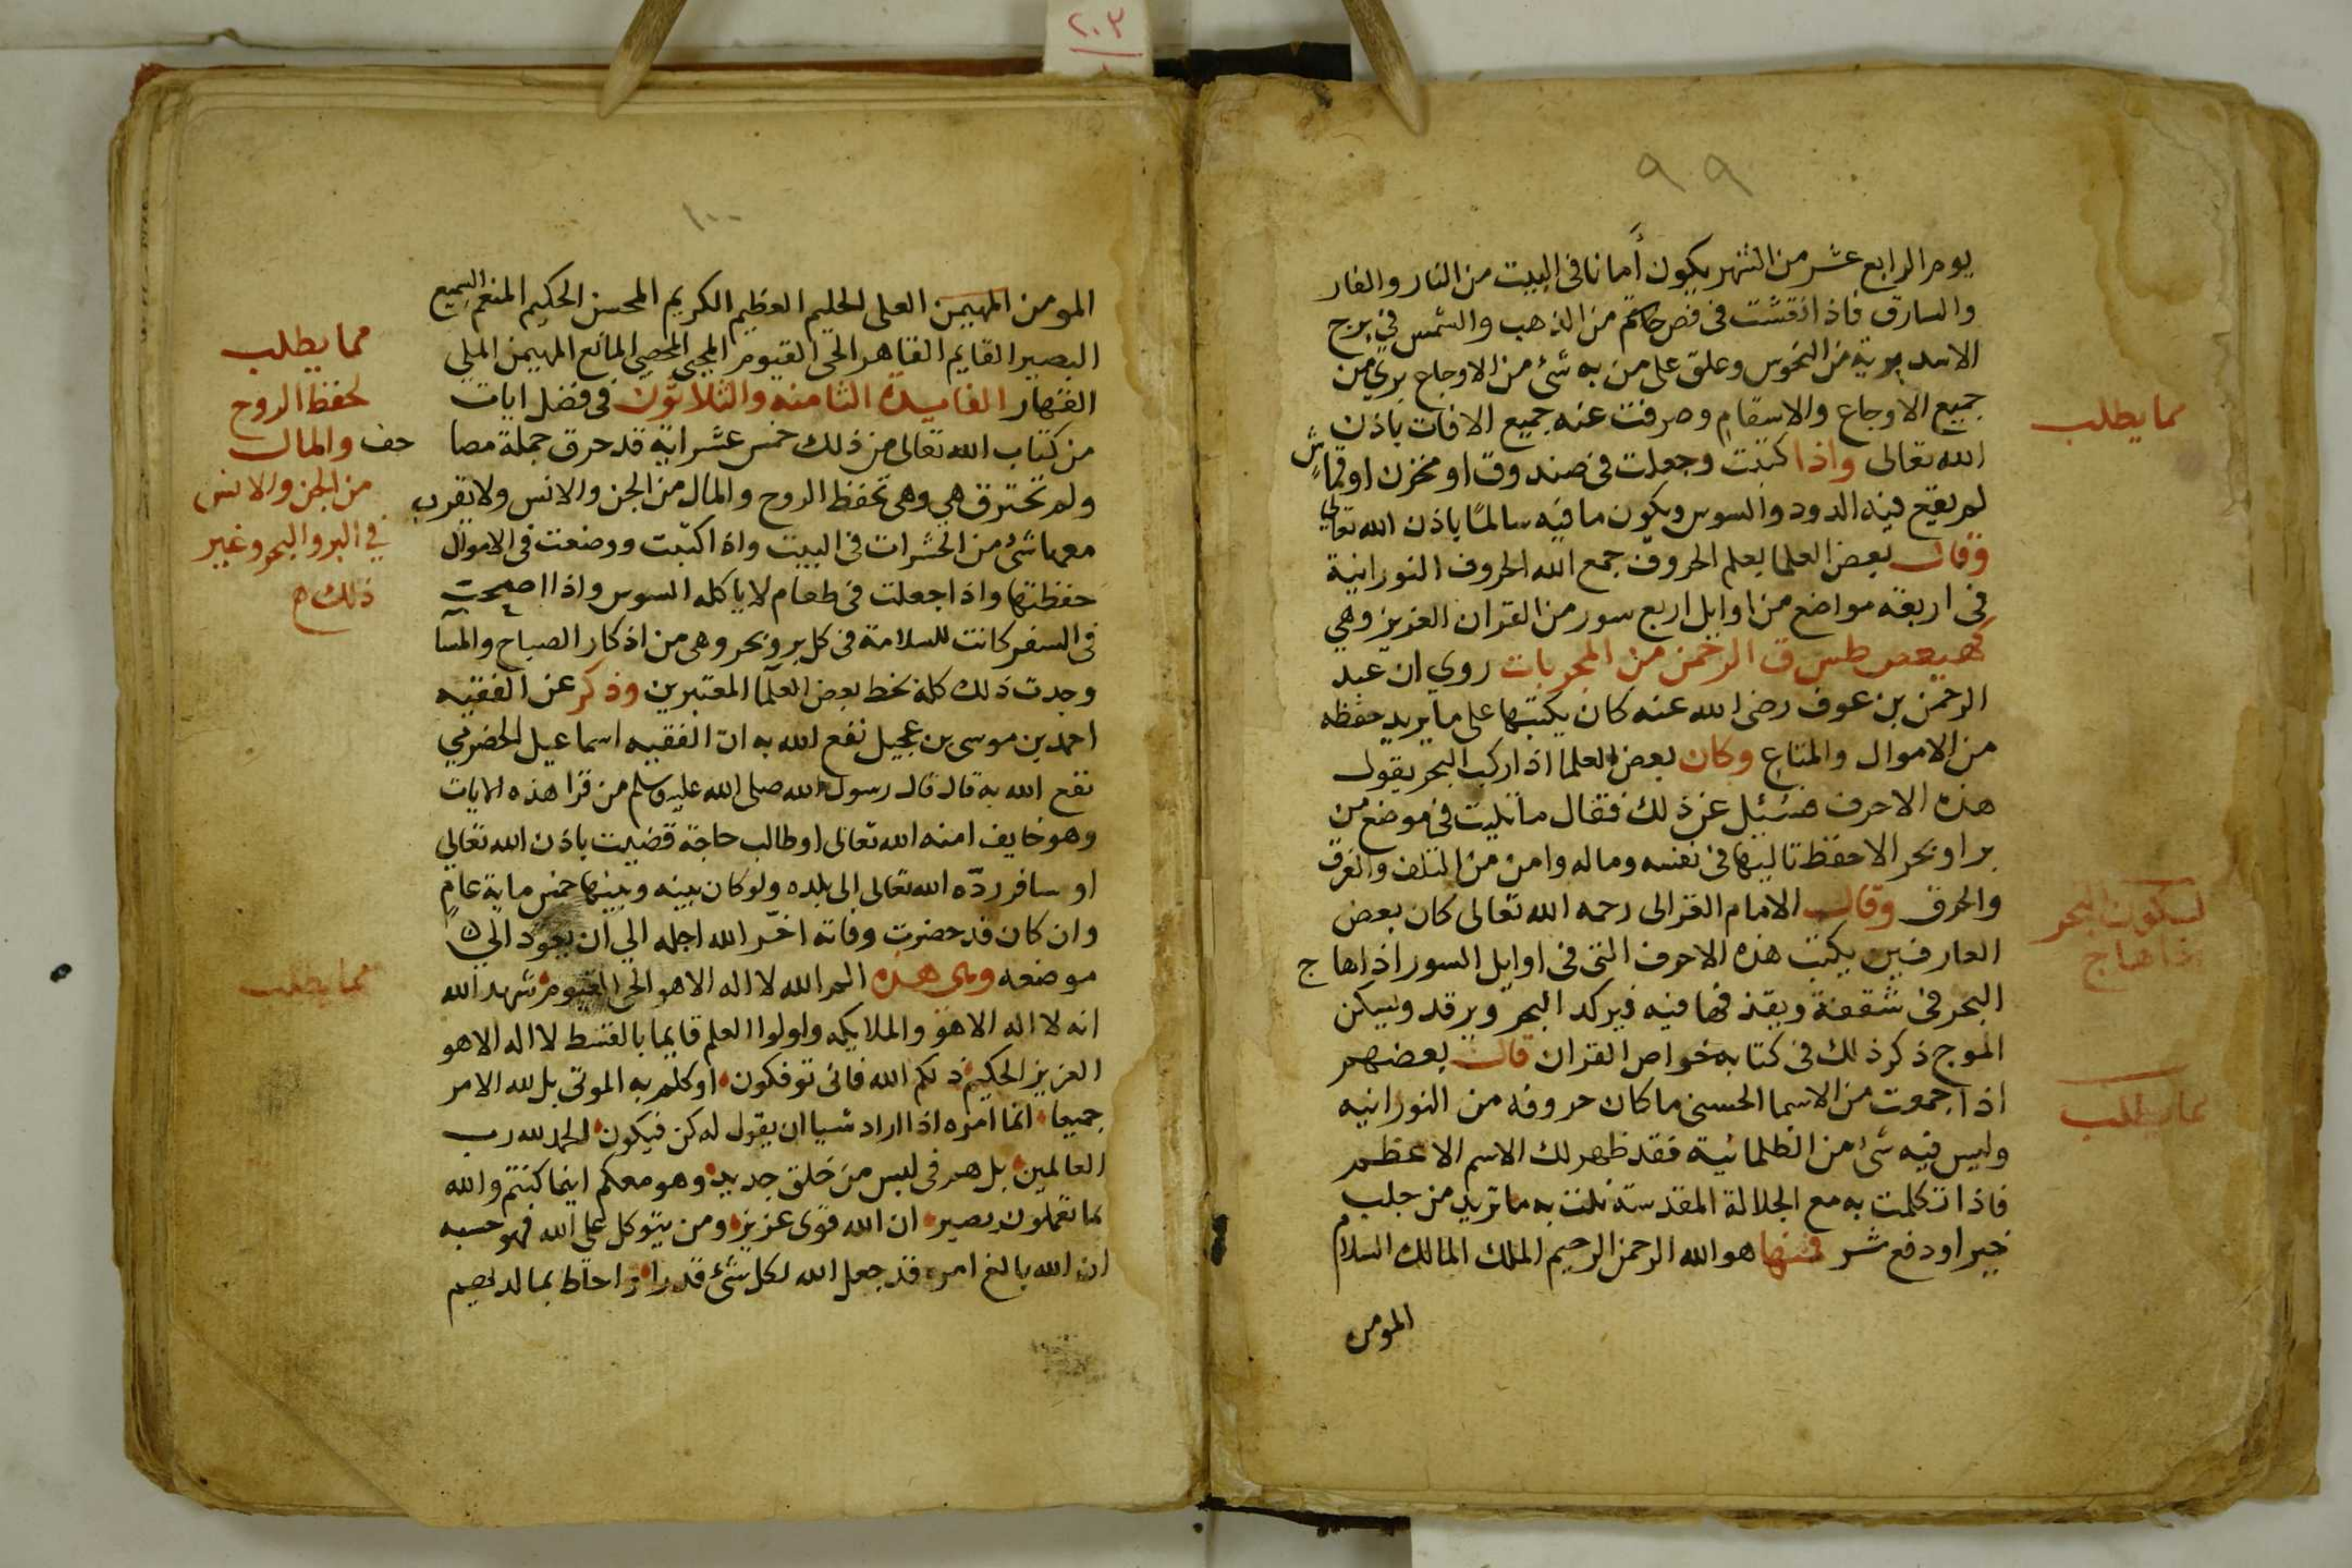 ٢٠٣
٩٩
يوم الرابع عشر من الشهر يكون أمانا فى البيت من النار والفار
والسارق فاذا نقشت فى فص خاتم من الذهب والشمس في برج
الاسد برية من النحوس وعلق على من به شئ من الاوجاع بري من
جميع الاوجاع والاسقام وصرفت عنه جميع الافات باذن
الله تعالى واذا كتبت وجعلت فى صندوق او مخزن او قماش
لم يقع فيه الدود والسوس ويكون ما فيه سالمًا باذن الله تعالى
وقال بعض العلما بعلم الحروف جمع الله الحروف النورانية
فى اربعة مواضع من اوايل اربع سور من القران العزيز وهي
كهيعص طس ق الرحمن من المجربات روي ان عبد
الرحمن بن عوف رضى الله عنه كان يكتبها على ما يريد حفظه
من الاموال والمتاع وكان بعض العلما اذا ركب البحر يقول
هذه الاحرف فسئيل عن ذلك فقال ما تليت فى موضع من
بر او بحر الا حفظ تاليها فى نفسه وماله وامن من التلف والغرق
والحرق وقال الامام الغزالى رحمه الله تعالى كان بعض
العارفين يكتب هذه الاحرف التى فى اوايل السور اذا هاج
البحر فى شقفة ويقذفها فيه فيركد البحر ويرقد ويسكن
الموج ذكر ذلك فى كتابه خواص القران قال بعضهم
اذا جمعت من الاسما الحسنى ما كان حروفه من النورانيه
وليس فيه شئ من الظلمانية فقد ظهر لك الاسم الاعظم
فاذا تكلمت به مع الجلالة المقدسة نلت به ما تريد من جلب
خير او دفع شر فمنها هو الله الرحمن الرحيم الملك المالك السلام
المومن
مما يطلب
لسكون البحر
اذا هاج
مما يطلب
١٠٠
المومن المهيمن العلى الحليم العظيم الكريم المحسن الحكيم المنعم السميع
البصير القايم القاهر الحى القيوم المحيى المحصى المانع المهيمن الملي
القهار الفايدة الثامنه والثلاثون فى فضل ايات
من كتاب الله تعالى من ذلك خمس عشر اية قد حرق جملة مصا
حف
ولم تحترق هي وهى تحفظ الروح والمال من الجن والانس ولا يقرب
معها شئ من الحشرات فى البيت واذا كتبت ووضعت فى الاموال
حفظتها واذا جعلت فى طعام لا ياكله السوس واذا اصحبت
فى السفر كانت للسلامة فى كل بر وبحر وهى من اذكار الصباح والمسآ
وجدت ذلك كله بخط بعض العلمآ المعتبرين وذكر عن الفقيه
احمد بن موسى بن عجيل نفع الله به ان الفقيه اسماعيل الحضرمي
نفع الله به قال قال رسول الله صلى الله عليه وسلم من قرا هذه الايات
وهو خايف امنه الله تعالى او طالب حاجة قضيت باذن الله تعالى
او سافر ردّه الله تعالى الى بلده ولو كان بينه وبينها خمس ماية عام
وان كان قد حضرت وفاته اخّر الله اجله الي ان يعود الي
موضعه وهى هذه الم الله لا اله الا هو الحى القيوم شهد الله
انه لا اله الا هو والملايكه واولوا العلم قايما بالقسط لا اله الا هو
العزيز الحكيم ذلكم الله فانى توفكون او كلم به الموتى بل لله الامر
جميعا انما امره اذا اراد شيا ان يقول له كن فيكون الحمد لله رب
العالمين بل هم فى لبس من خلق جديد وهو معكم اينما كنتم والله
بما تعملون بصير ان الله قوى عزيز ومن يتوكل على الله فهو حسبه
ان الله بالغ امره قد جعل الله لكل شئ قدرا واحاط بما لديهم
مما يطلب
لحفظ الروح
والمال
من الجن والانس
في البر والبحر وغير
ذلك
مما يطلب